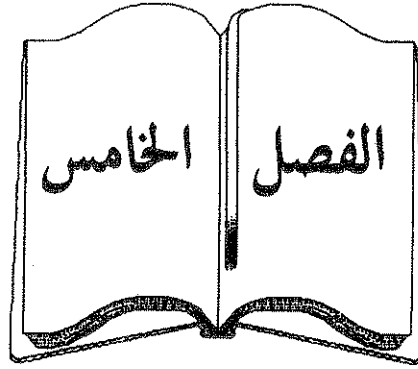 الفصل الخامس